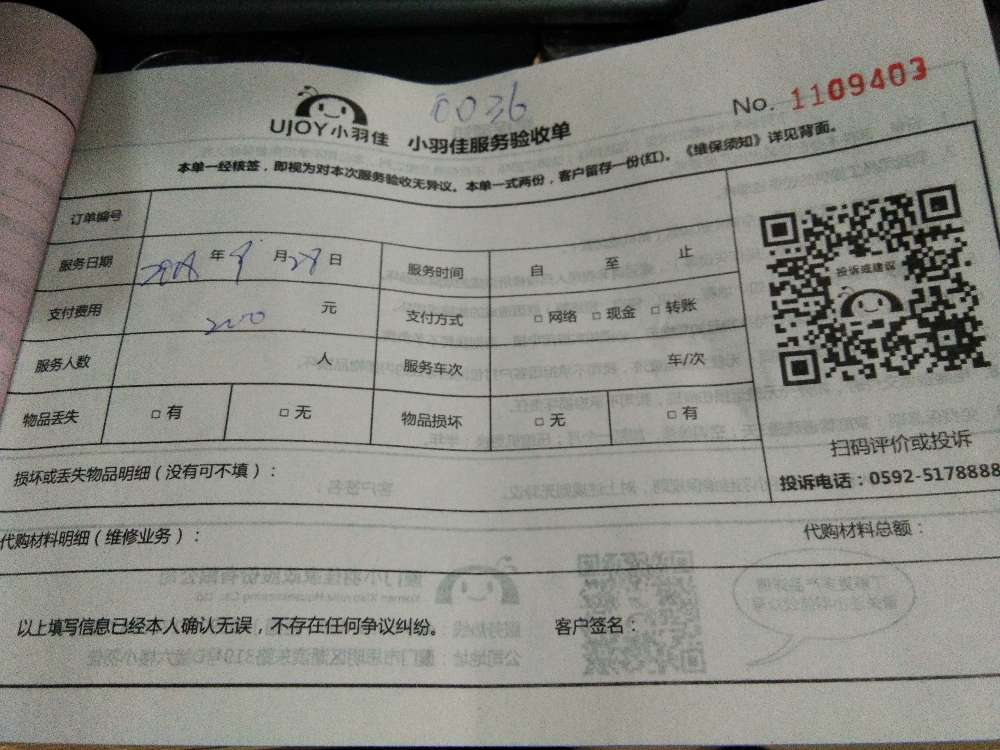 0036
No. 1109403
UJOY小羽佳 小羽佳服务验收单
本单一经核签，即视为对本次服务验收无异议。本单一式两份，客户留存一份(红)。《维保须知》详见背面。
订单编号
服务日期 2018 年 9 月 28 日 服务时间 自 至 止
支付费用 200 元 支付方式 □ 网络 □ 现金 □ 转账
服务人数 人 服务车次 车/次
物品丢失 □ 有 □ 无 物品损坏 □ 无 □ 有
投诉或建议
扫码评价或投诉
投诉电话：0592-5178888
损坏或丢失物品明细（没有可不填）：
代购材料明细（维修业务）： 代购材料总额：
以上填写信息已经本人确认无误，不存在任何争议纠纷。 客户签名：